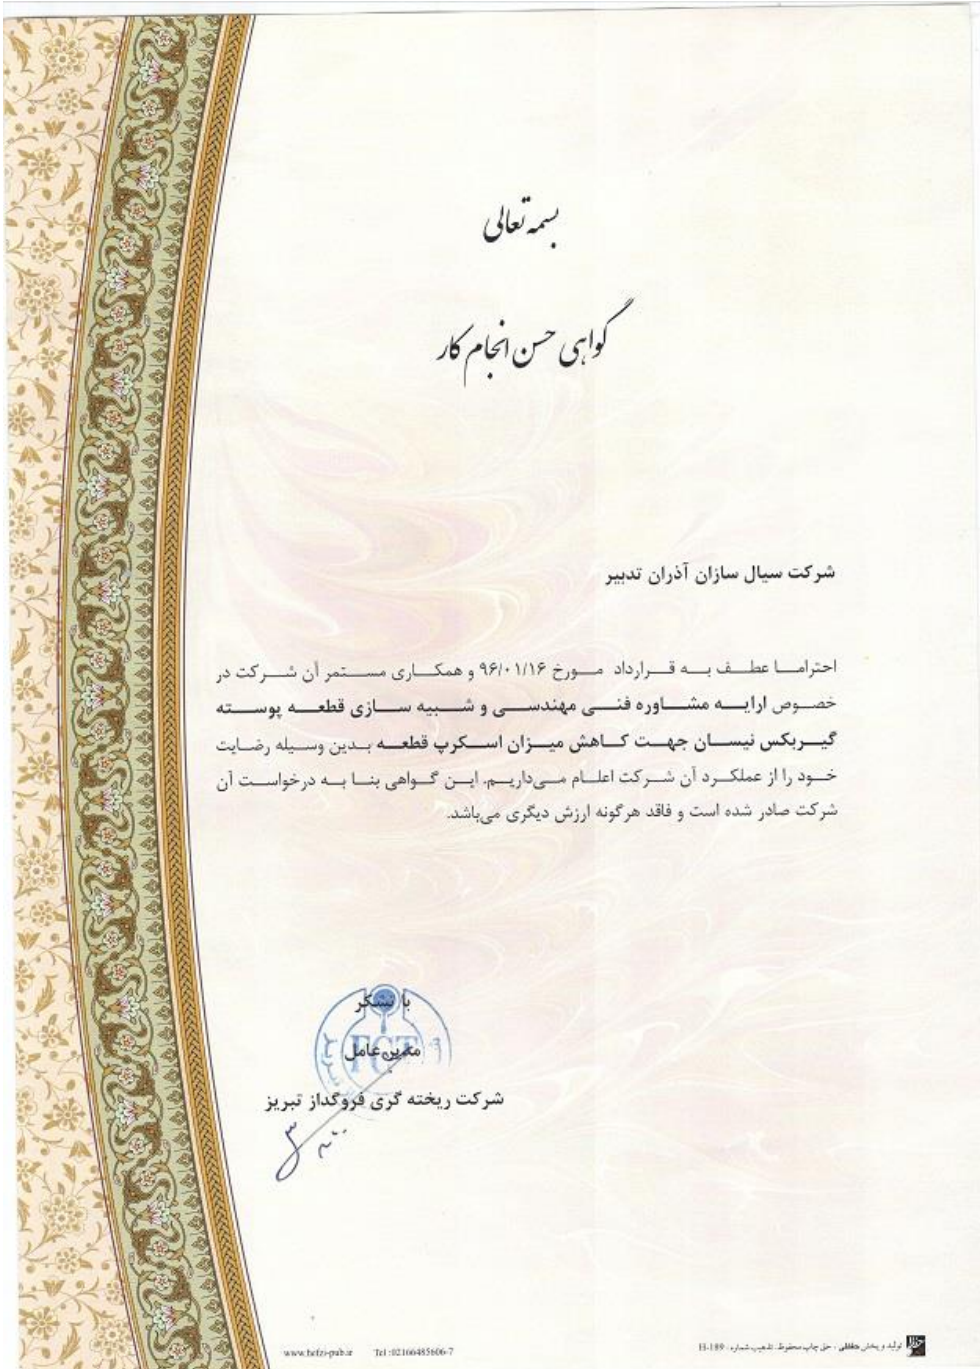 بسمه تعالی
گواهی حسن انجام کار
شرکت سیال سازان آذران تدبیر
احتراما عطف به قرارداد مورخ ۹۶/۰۱/۱۶ و همکاری مستمر آن شرکت در
خصوص ارایه مشاوره فنی مهندسی و شبیه سازی قطعه پوسته
گیربکس نیسان جهت کاهش میزان اسکرپ قطعه بدین وسیله رضایت
خود را از عملکرد آن شرکت اعلام می‌داریم. این گواهی بنا به درخواست آن
شرکت صادر شده است و فاقد هرگونه ارزش دیگری می‌باشد.
با تشکر
مدیرعامل
FCT
شرکت ریخته گری فروگداز تبریز
www.hefzi-pub.ir Tel :02166485606-7
تولید و پخش حافظی ، حق چاپ محفوظ. تذهیب شماره : H-189